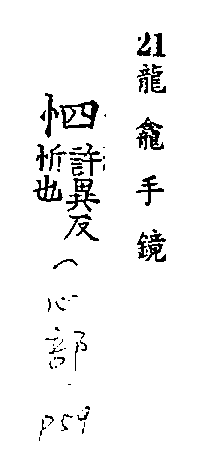 21龍龕手鏡
怬許異反
忻也
(心部.
p59